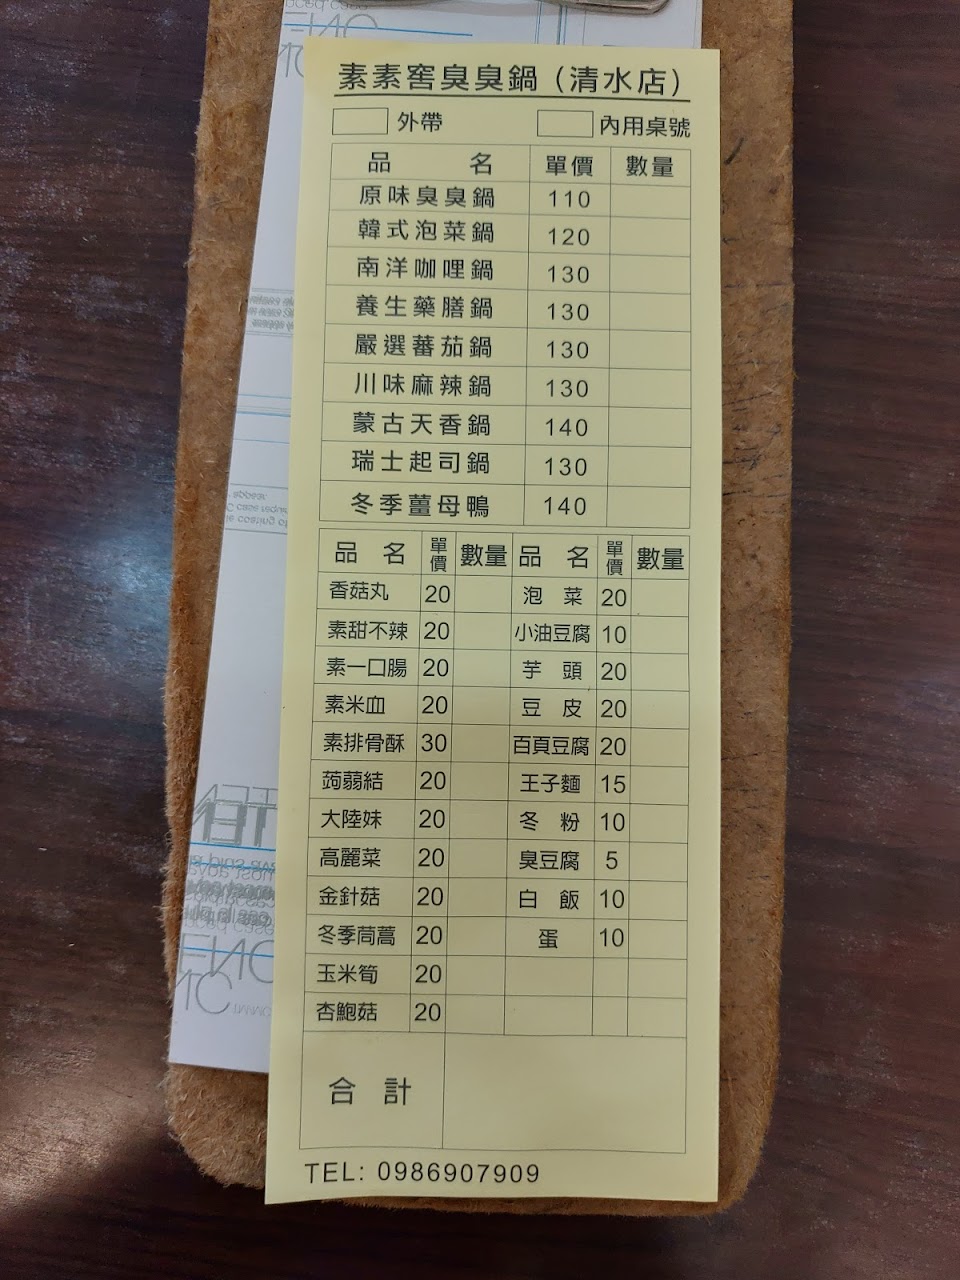 素素窖臭臭鍋（清水店）
外帶 內用桌號
品 名 單價 數量
原味臭臭鍋 110
韓式泡菜鍋 120
南洋咖哩鍋 130
養生藥膳鍋 130
嚴選蕃茄鍋 130
川味麻辣鍋 130
蒙古天香鍋 140
瑞士起司鍋 130
冬季薑母鴨 140
品 名 單價 數量 品 名 單價 數量
香菇丸 20 泡 菜 20
素甜不辣 20 小油豆腐 10
素一口腸 20 芋 頭 20
素米血 20 豆 皮 20
素排骨酥 30 百頁豆腐 20
蒟蒻結 20 王子麵 15
大陸妹 20 冬 粉 10
高麗菜 20 臭豆腐 5
金針菇 20 白 飯 10
冬季茼蒿 20 蛋 10
玉米筍 20
杏鮑菇 20
合 計
TEL: 0986907909